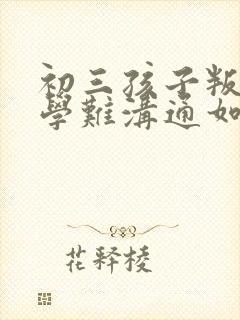 初三孩子叛
學難溝通如
花释棱